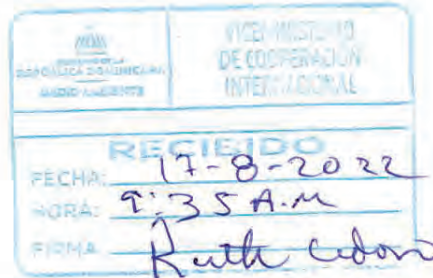 GOBIERNO DE LA
REPÚBLICA DOMINICANA
MEDIO AMBIENTE
VICEMINISTERIO
DE COOPERACIÓN
INTERNACIONAL
RECIBIDO
FECHA: 17-8-2022
HORA: 9:35 A.M
FIRMA Ruth